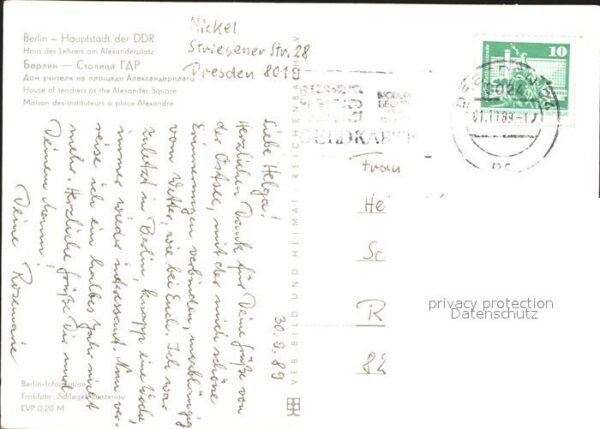 Berlin – Hauptstadt der DDR
Haus des Lehrers am Alexanderplatz
Берлин — Столица ГДР
Дом учителя на площади Александерплатц
House of teachers at the Alexander Square
Maison des instituteurs à place Alexandre
Nickel
Striesener Str. 28
Dresden 8019
10
DRESDEN
8024
01.10.89-17
GELDKARTE
30.9.89
Liebe Helga!
Herzlichen Dank für Deine Grüße von
der Ostsee, mit der mich schöne
Erinnerungen verbinden, unabhängig
vom Wetter, wie bei Euch. Ich war
zuletzt in Berlin, knapp eine Woche,
immer wieder interessant. Nun ver-
reise ich ein halbes Jahr nicht
mehr. Herzliche Grüße Dir und
Deinem Mann!
Deine Rosmarie
VEB BILD UND HEIMAT · REICHENBACH
Frau
He
Sc
R
82
privacy protection
Datenschutz
Berlin-Information
Farbfoto: Schlegel
EVP 0,20 M